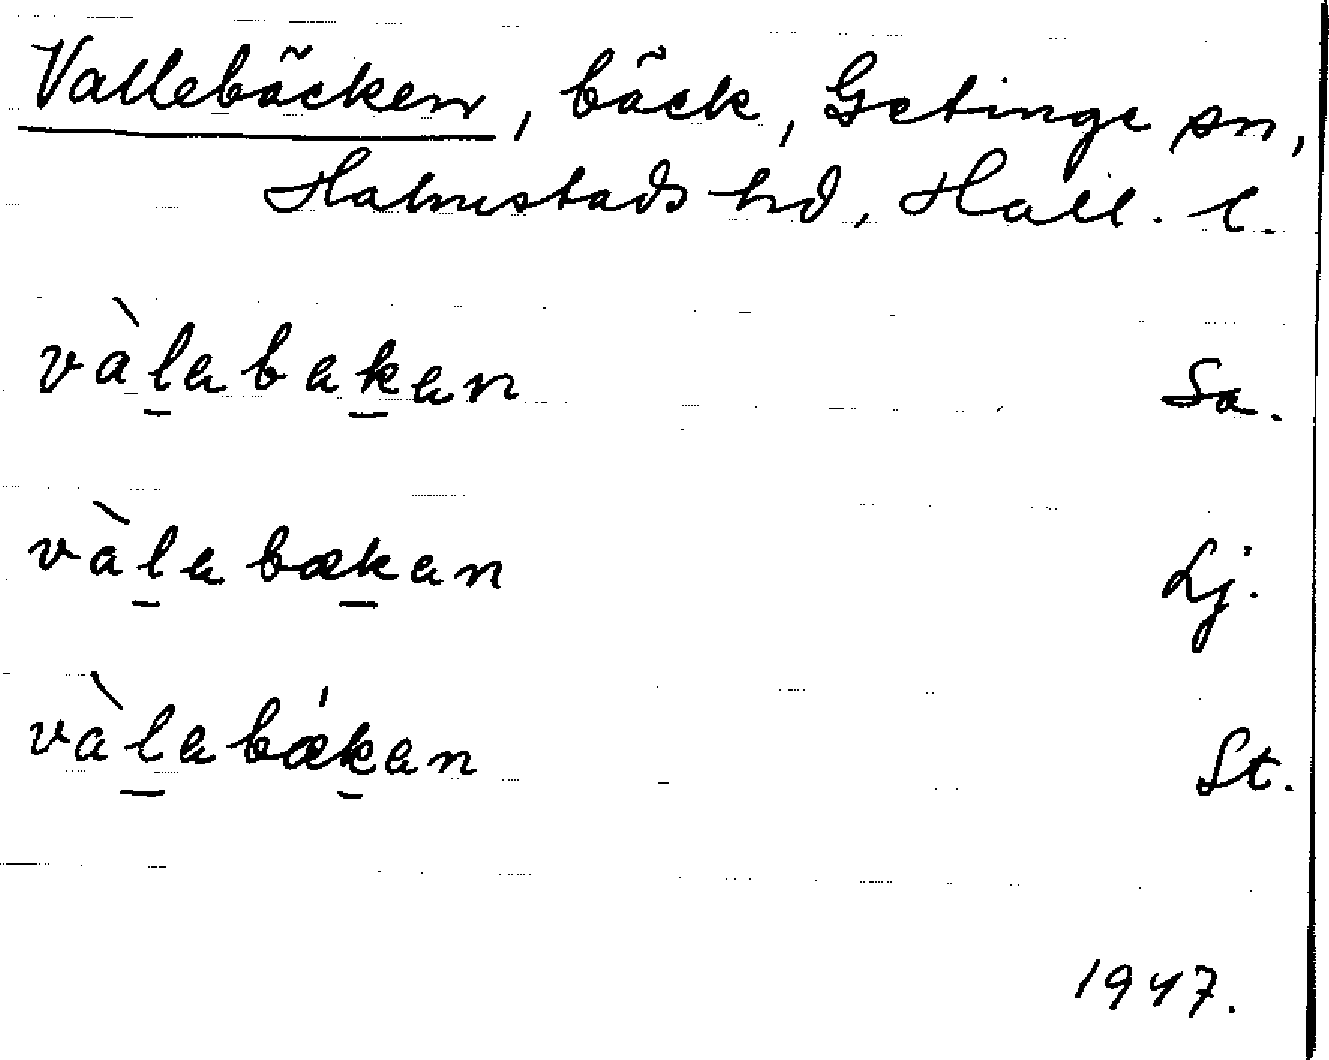 Vallebäcken, bäck, Getinge sn,
Halmstads hd, Hall. l.
vàl̲abak̲an Sa.
vàl̲abæk̲an Lj.
vàl̲abǽk̲an St.
1947.